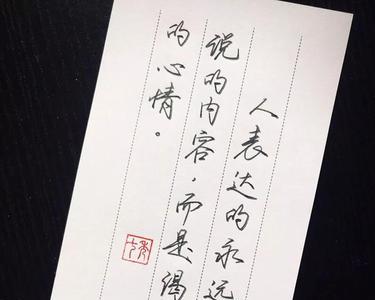 人表达的永远
说的内容，而是渴
的心情。